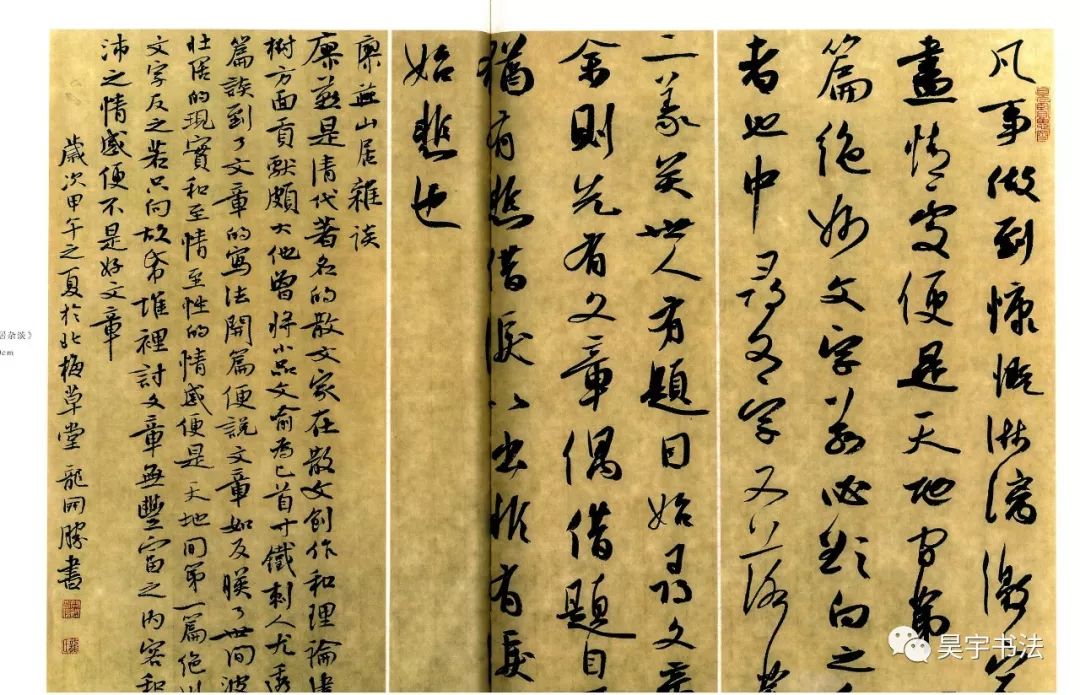 凡事做到慷慨淋漓激宕
盡情處便是天地間第
篇絕妙文字若必欲向之
者也中尋文字又落第
二義矣世人有題目始尋文章
余則先有文章偶借題目
猶有悲借淚以出非有淚
始悲也
廖燕山居雜談
廖燕是清代著名的散文家在散文創作和理論建
樹方面貢獻頗大他曾將小品文喻為匕首寸鐵刺人尤透
篇談到了文章的寫法開篇便說文章如反映了世間波
壯居的現實和至情至性的情感便是天地間第一篇絕妙
文字反之若只向故帋堆裡討文章無豐富之內容和
沛之情感便不是好文章
歲次甲午之夏於北梅草堂龍開勝書
居杂谈》
cm
昊宇书法